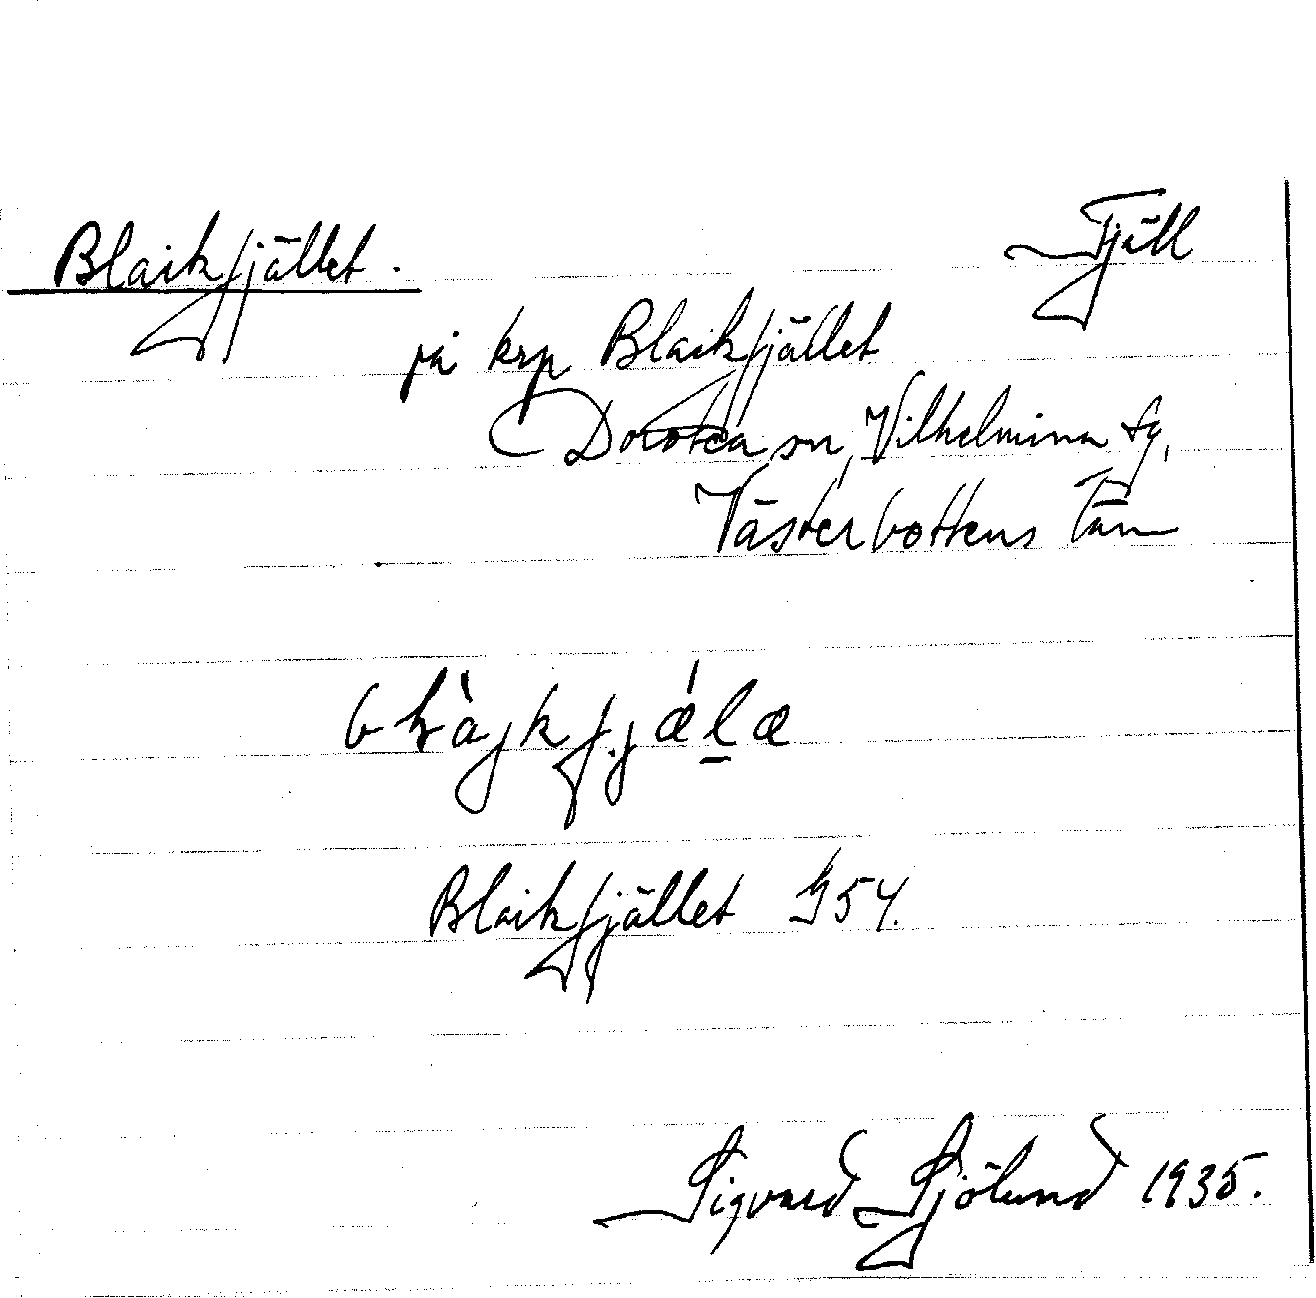 Blaikfjället.
Fjäll
på krp Blaikfjället
Dorotea sn, Vilhelmina tg,
Västerbottens län
Blaikfjället G54.
Sigvard Sjölund 1935.